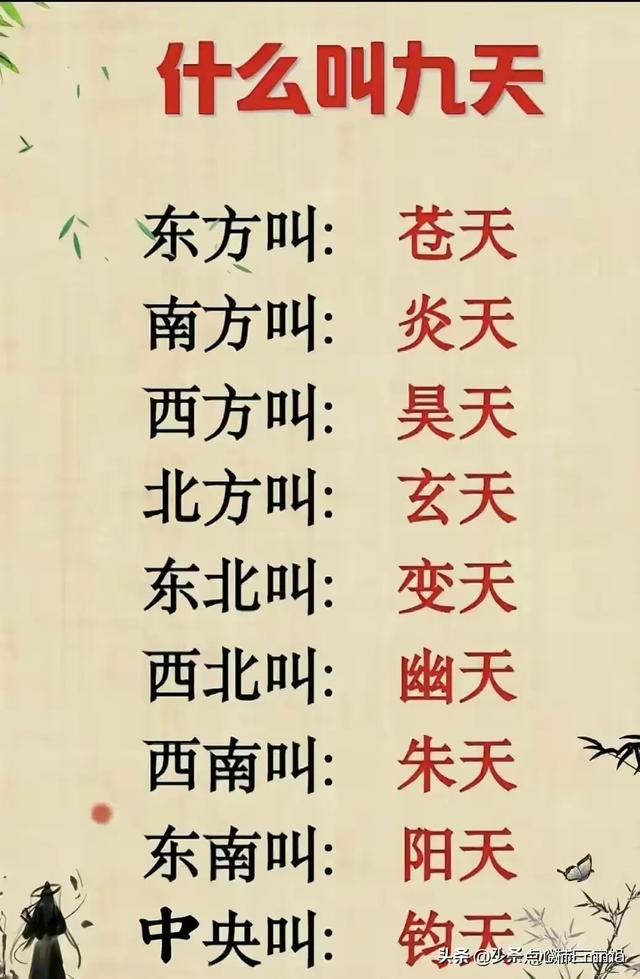 什么叫九天
东方叫: 苍天
南方叫: 炎天
西方叫: 昊天
北方叫: 玄天
东北叫: 变天
西北叫: 幽天
西南叫: 朱天
东南叫: 阳天
中央叫: 钧天
头条